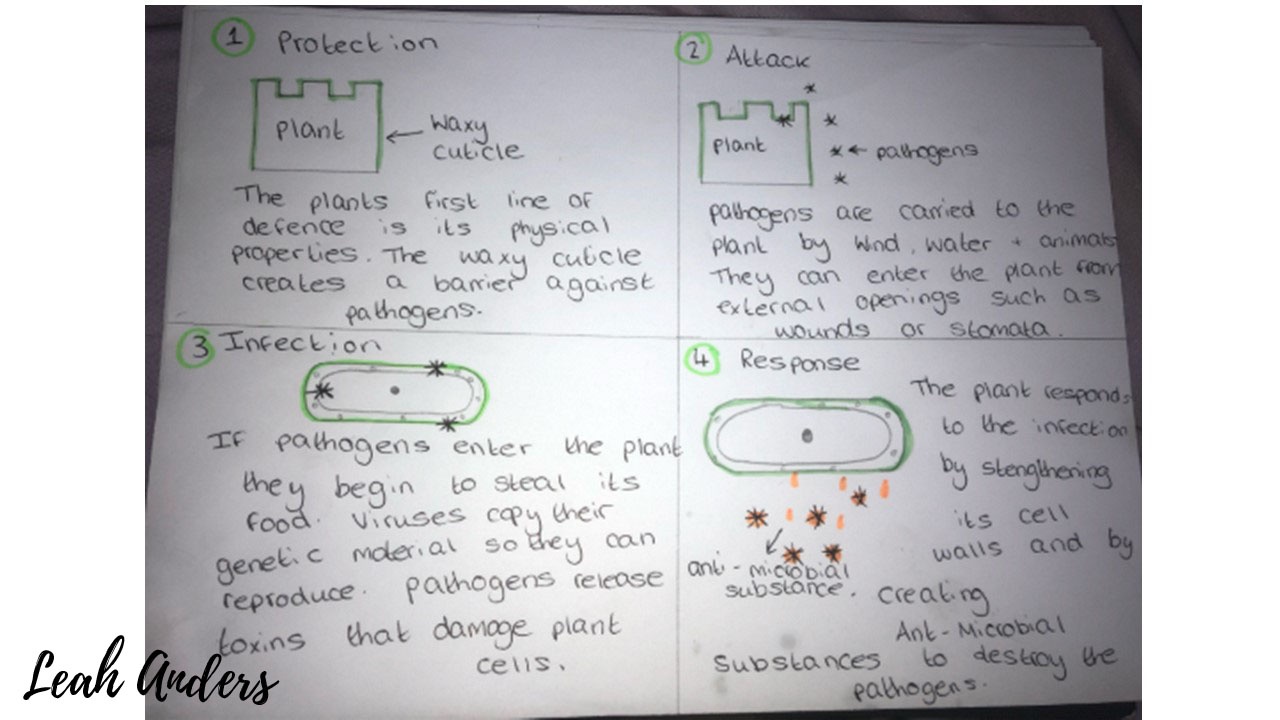 1 Protection
plant
Waxy
cuticle
The plants first line of
defence is its physical
properties. The waxy cuticle
creates a barrier against
pathogens.
2 Attack
plant
pathogens
pathogens are carried to the
plant by wind, water + animals
They can enter the plant from
external openings such as
wounds or stomata.
3 Infection
If pathogens enter the plant
they begin to steal its
food. Viruses copy their
genetic material so they can
reproduce. pathogens release
toxins that damage plant
cells.
4 Response
The plant responds
to the infection
by stengthening
its cell
walls and by
anti-microbial
substance.
creating
Ant-Microbial
substances to destroy the
pathogens.
Leah Anders